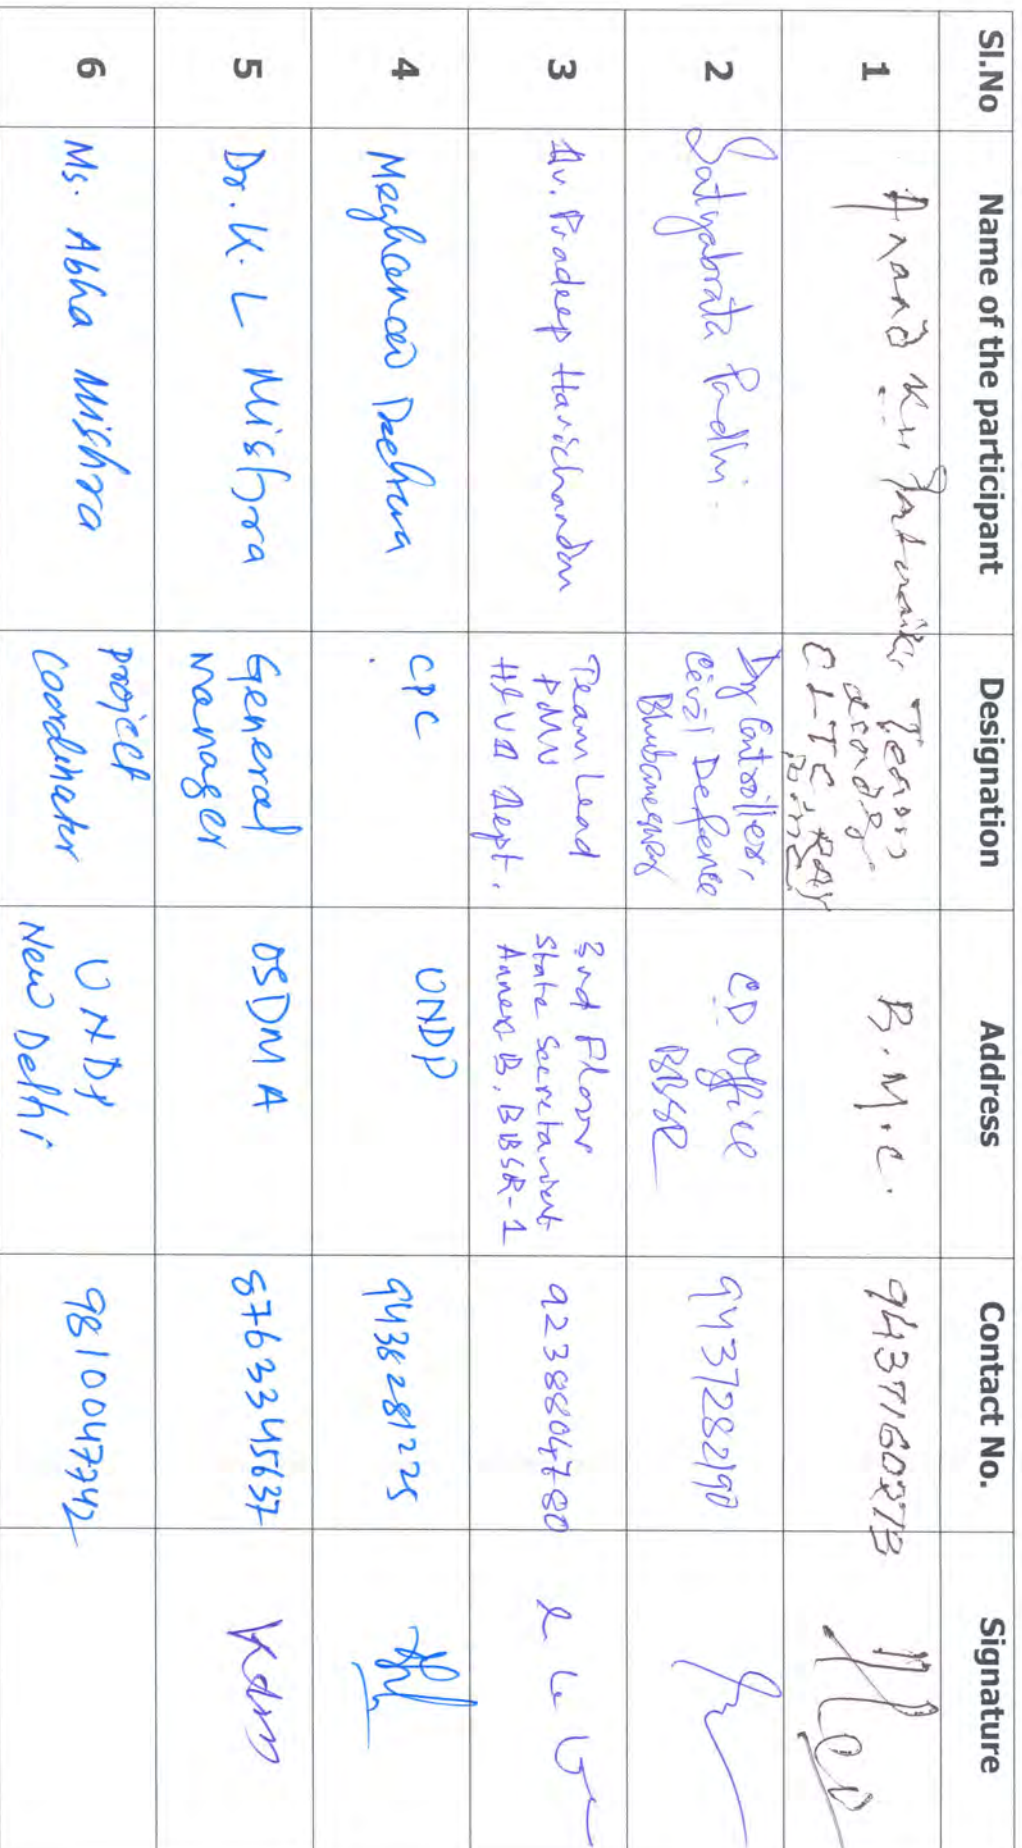 Sl.No Name of the participant Designation Address Contact No. Signature
1 Anand Kr. Patnaik, Team Leader CLTC, RAY B.M.C. 9437160273
2 Satyabrata Padhi. Dy Controller, Civil Defence Bhubaneswar CD Office BBSR 9437282190
3 Av. Pradeep Harichandan Team Lead PMU H&UD Dept. 3rd Floor State Secretariat Annex B, BBSR-1 9238804780
4 CPC UNDP 9438281225
5 Dr. K. L Mishra General Manager OSDMA 8763345637
6 Ms. Abha Mishra Project Coordinator UNDP New Delhi 9810047742